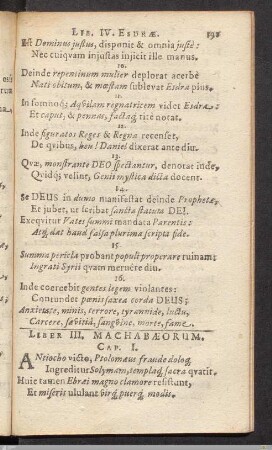 LIB. IV. ESDRÆ. 191
Est Dominus justus, disponit & omnia justè:
Nec cuiqvam injustas injicit ille manus.
10.
Deinde repentinum mulier deplorat acerbè
Nati obitum, & mœstam sublevat Esdra pius.
11.
In somnōq; Aqvilam regnatricem videt Esdras:
Et caput, & pennas, factaq́; ritè notat.
12.
Inde figuratos Reges & Regna recenset,
De qvibus, heu! Daniel dixerat ante diu.
13.
Qvæ, monstrante DEO spectantur, denotat inde,
Quidq́; velint, Genii mystica dicta docent.
14.
Se DEUS in dumo manifestat deinde Prophetæ,
Et jubet, ut scribat sancta statuta DEI.
Exeqvitur Vates summi mandata Parentis:
Atq́; dat haud falsa plurima scripta fide.
15.
Summa pericla probant populi properare ruinam:
Ingrati Syrii qvam meruére diu.
26.
Inde coërcebit gentes legem violantes:
Contundet pœnis saxea corda DEUS;
Anxietate, minis, terrore, tyrannide, luctu,
Carcere, sævitiâ, sangvine, morte, fame.
LIBER III. MACHABÆORUM.
CAP. I.
ANtiocho victo, Ptolomæus fraude doloq́;
Ingreditur Solymam, templaq́; sacra qvatit.
Huic tamen Ebræi magno clamore resistunt,
Et miserè ululant virq́; puerq́; modis.